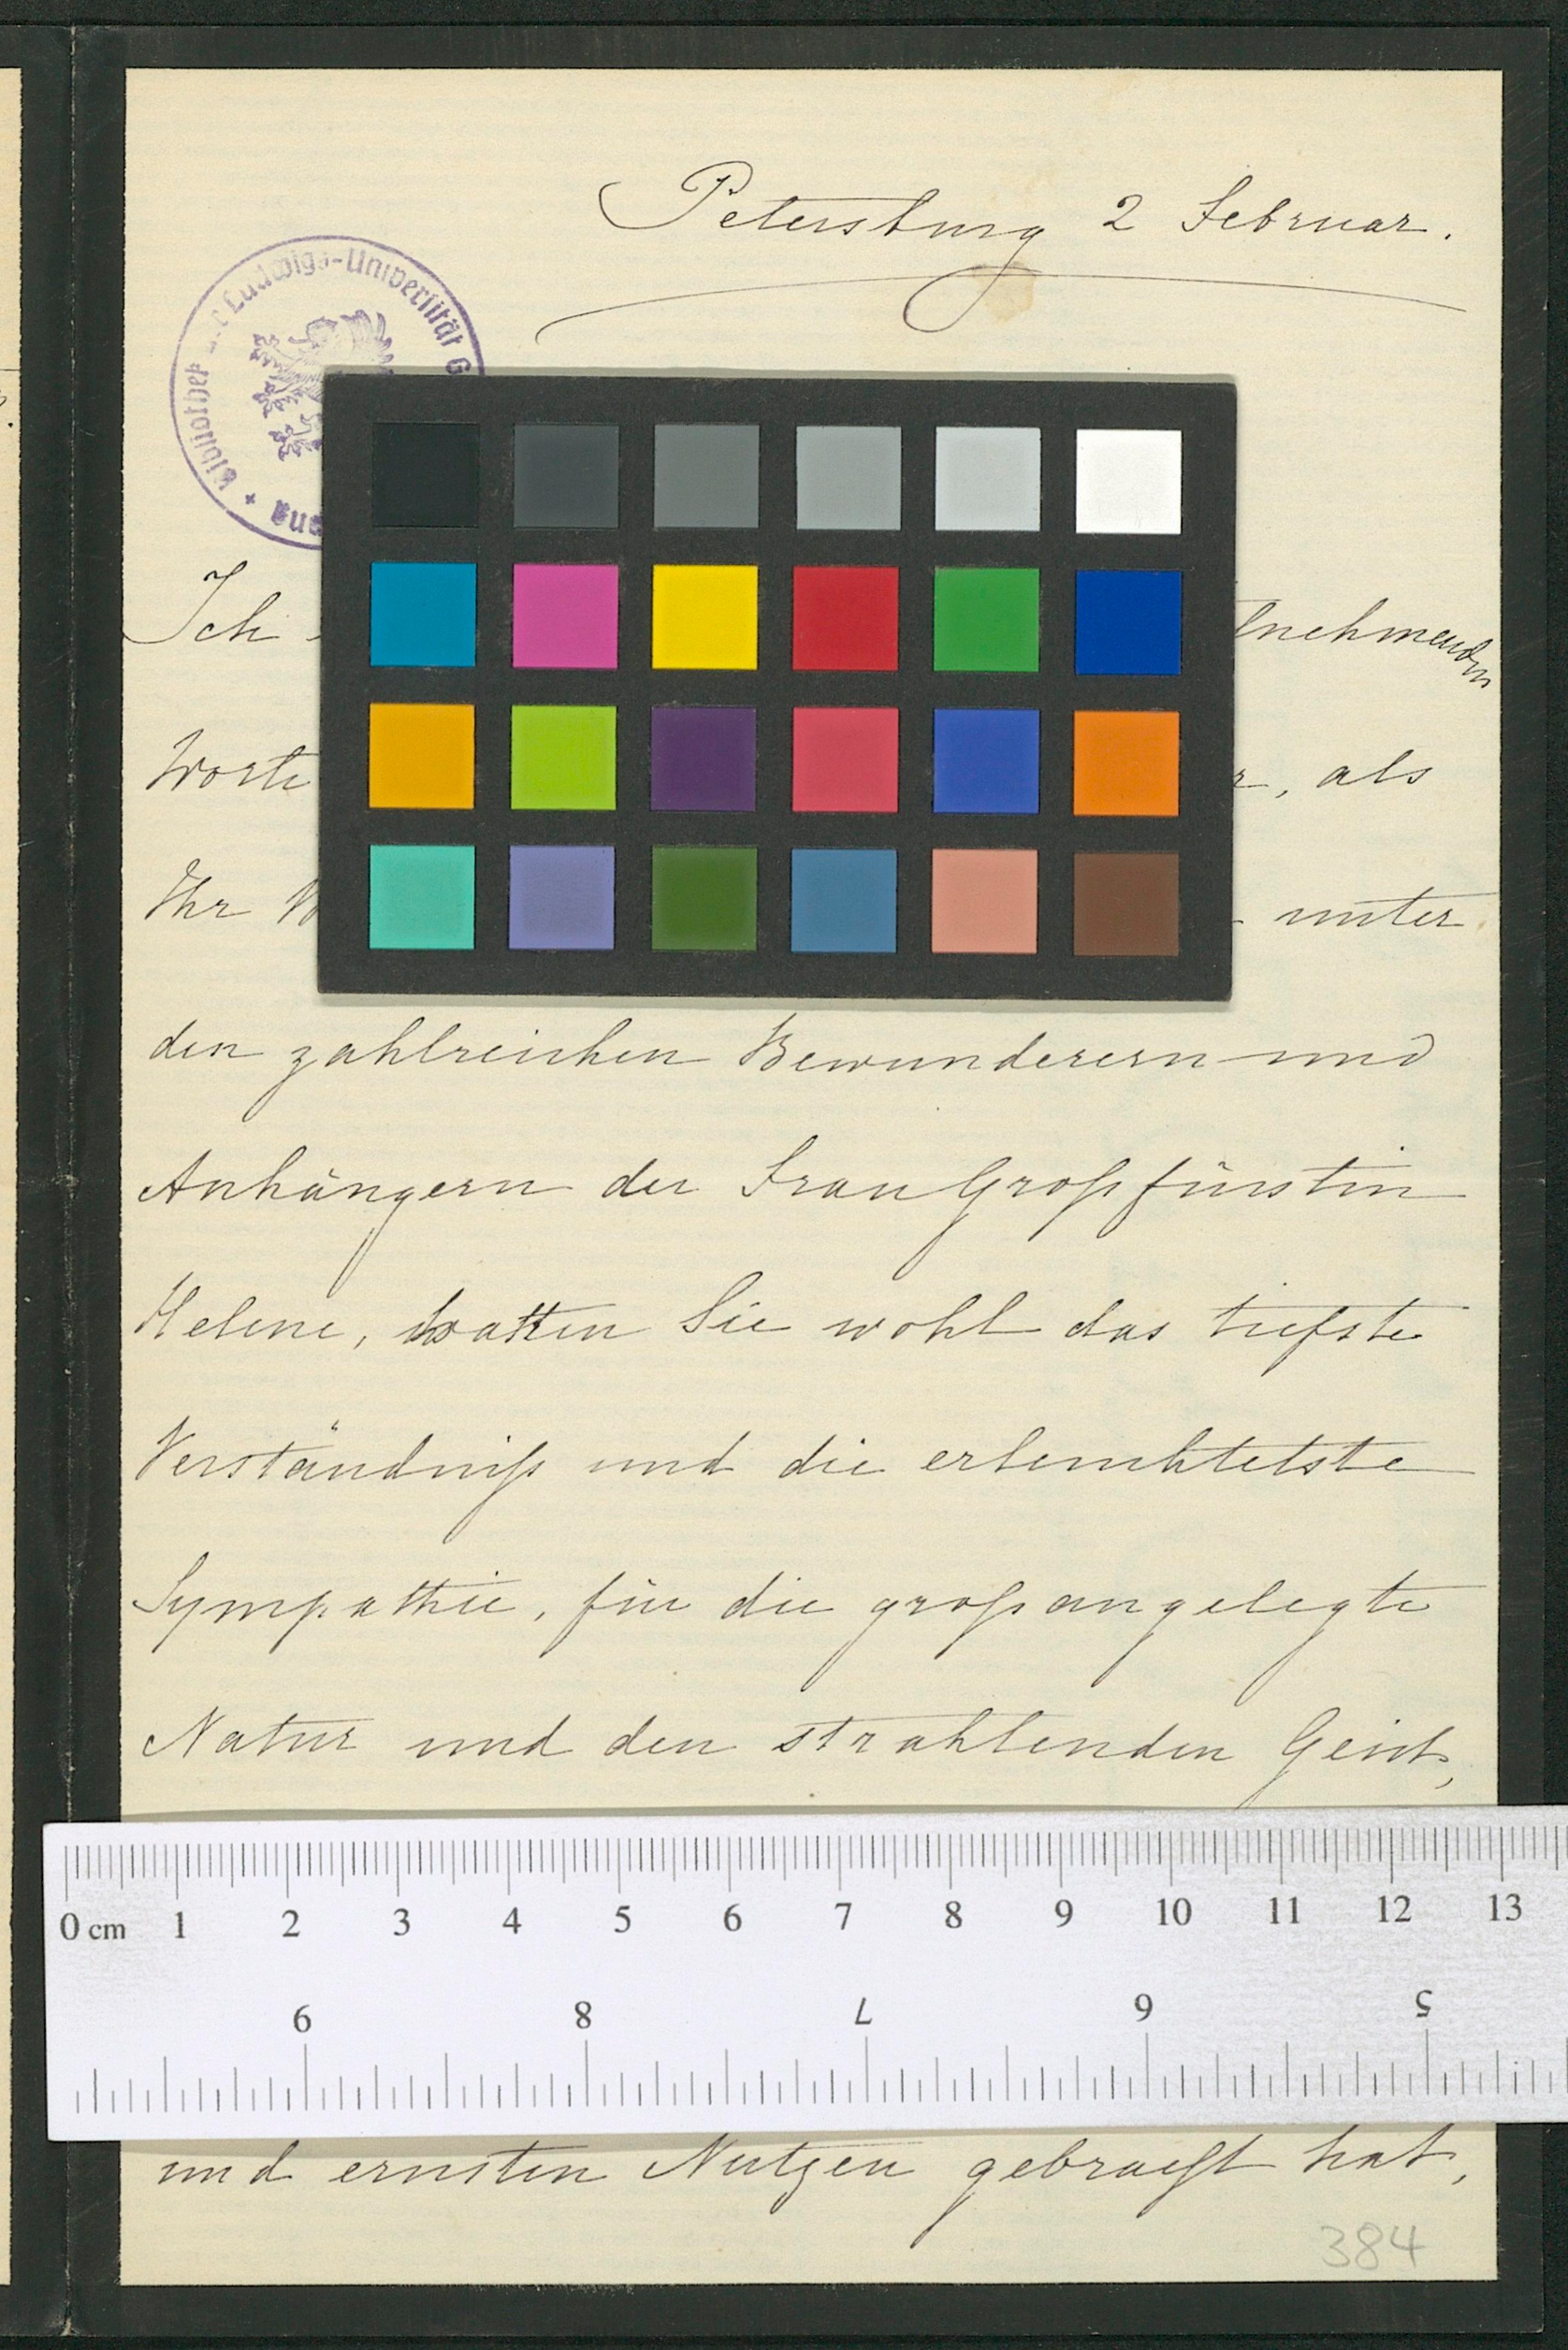 Petersburg 2 Februar.
Bibliothek der Ludwigs-Universität
Ich
Worte , als
Ihr unter
den zahlreichen Bewunderern und
Anhängern der Frau Großfürstin
Helene, hatten Sie wohl das tiefste
Verständniß und die erleuchtetste
Sympathie, für die großangelegte
Natur und den strahlenden Geist,
0 cm 1 2 3 4 5 6 7 8 9 10 11 12 13
9 8 7 6 5
und ernsten Nutzen gebracht hat,
384